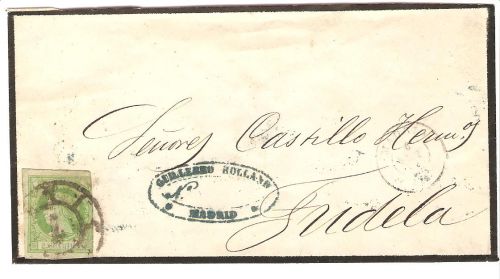 Señores Castillo Herm.os
GUILLERMO ROLLAND
N
MADRID
Tudela